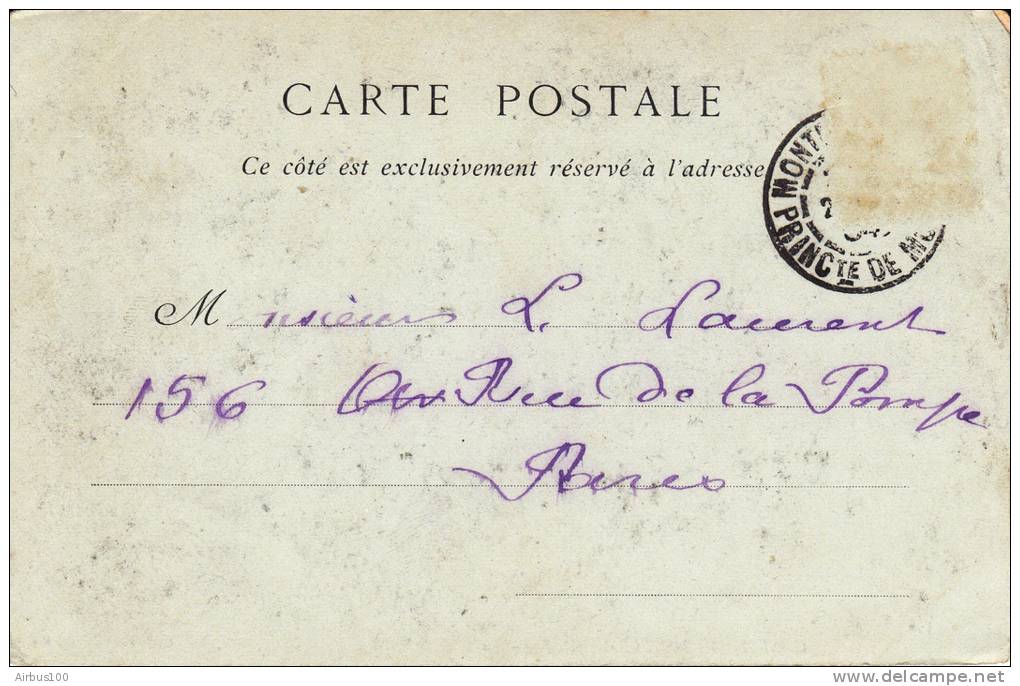 CARTE POSTALE
Ce côté est exclusivement réservé à l'adresse
MONT
PRINCTE DE MO
Monsieur L. Laurent
156 Rue De la Pompe
Paris
Airbus100
delcampe.net